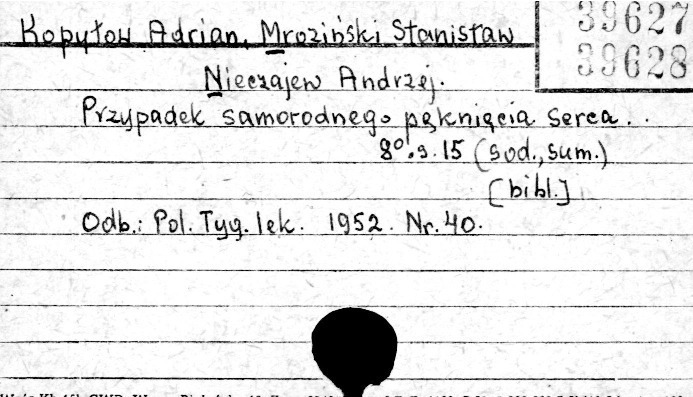 39627
39628
Kopyłow Adrian, Mroziński Stanisław
Nieczajew Andrzej.
Przypadek samorodnego pęknięcia serca..
8°.s.15 (sod., sum.)
[bibl.]
Odb.: Pol. Tyg. lek. 1952. Nr. 40.